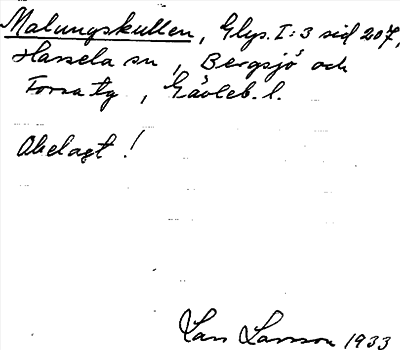 Malungskullen, Glys. I:3 sid 207,
Hassela sn, Bergsjö och
Forsa tg, Gävleb. l.
Obelagt!
Lars Larsson 1933